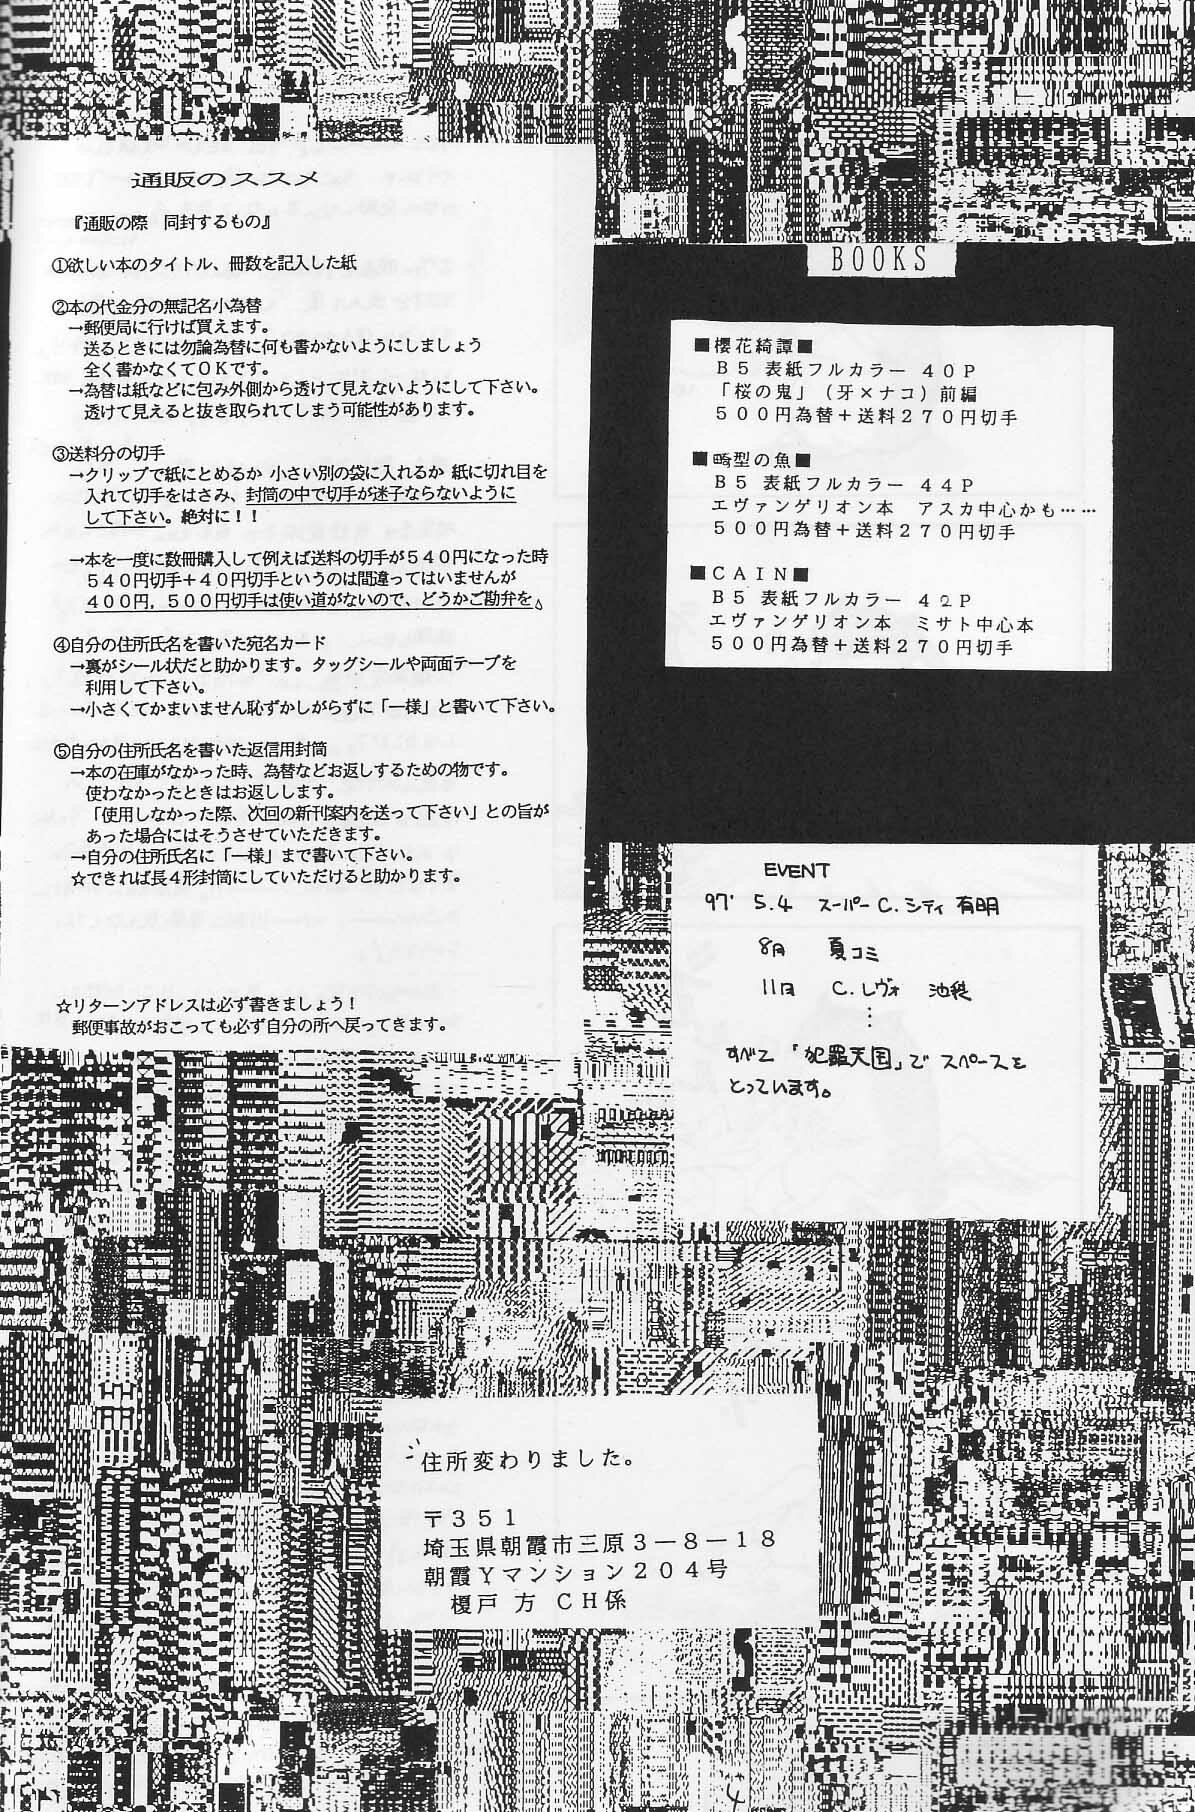 通販のススメ
『通販の際　同封するもの』
①欲しい本のタイトル、冊数を記入した紙
②本の代金分の無記名小為替
→郵便局に行けば買えます。
送るときには勿論為替に何も書かないようにしましょう
全く書かなくてＯＫです。
→為替は紙などに包み外側から透けて見えないようにして下さい。
透けて見えると抜き取られてしまう可能性があります。
③送料分の切手
→クリップで紙にとめるか 小さい別の袋に入れるか 紙に切れ目を
入れて切手をはさみ、封筒の中で切手が迷子ならないように
して下さい。絶対に！！
→本を一度に数冊購入して例えば送料の切手が５４０円になった時
５４０円切手＋４０円切手というのは間違ってはいませんが
４００円，５００円切手は使い道がないので、どうかご勘弁を。
④自分の住所氏名を書いた宛名カード
→裏がシール状だと助かります。タックシールや両面テープを
利用して下さい。
→小さくてかまいません恥ずかしがらずに「―様」と書いて下さい。
⑤自分の住所氏名を書いた返信用封筒
→本の在庫がなかった時、為替などお返しするための物です。
使わなかったときはお返しします。
「使用しなかった際、次回の新刊案内を送って下さい」との旨が
あった場合にはそうさせていただきます。
→自分の住所氏名に「―様」まで書いて下さい。
☆できれば長４形封筒にしていただけると助かります。
☆リターンアドレスは必ず書きましょう！
郵便事故がおこっても必ず自分の所へ戻ってきます。
BOOKS
■櫻花綺譚■
Ｂ５ 表紙フルカラー ４０Ｐ
「桜の鬼」（牙×ナコ）前編
５００円為替＋送料２７０円切手
■畸型の魚■
Ｂ５ 表紙フルカラー ４４Ｐ
エヴァンゲリオン本　アスカ中心かも……
５００円為替＋送料２７０円切手
■ＣＡＩＮ■
Ｂ５ 表紙フルカラー ４２Ｐ
エヴァンゲリオン本　ミサト中心本
５００円為替＋送料２７０円切手
EVENT
97' 5.4 スーパーC.シティ 有明
8月　夏コミ
11月　C.レヴォ　池袋
すべて「犯羅天国」で スペースを
とっています。
住所変わりました。
〒３５１
埼玉県朝霞市三原３－８－１８
朝霞Ｙマンション２０４号
榎戸 方 ＣＨ係